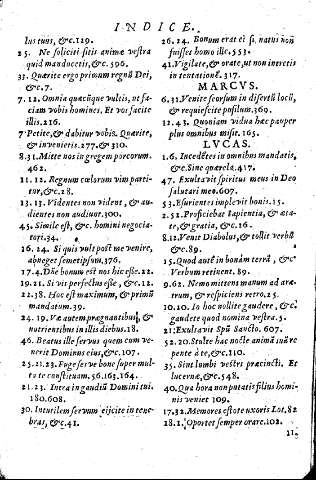 INDICE.
lus tuus, &c. 129.
25. Ne soliciti sitis animæ vestra
quid manducetis, &c. 596.
33. Quærite ergo primum regnũ Dei,
&c. 7.
7. 12. Omnia quæcũque vultis, ut fa-
ciam vobis homines, Et vos facite
illis. 216.
7 Petite, & dabitur vobis. Quærite,
& invenietis. 277. & 310.
8. 31. Mitte nos in gregem porcorum.
462.
11. 12. Regnum cœlorum vim parti-
tor, &c. 28.
13. 13. Videntes non vident, & au-
dientes non audiunt. 300.
45. Simile est, &c. homini negocia-
tori. 34.
16. 24. Si quis vult post me venire,
abneget semetipsum. 376.
17. 4. Dñe bonum est nos hic esse. 22.
19. 21. Si vis perfectus esse, &c. 12.
22. 38. Hoc est maximum, & primũ
mandatum. 39.
24. 19. Væ autem prægnantibus, &
nutrientibus in illis diebus. 18.
46. Beatus ille servus quem cum ve-
nerit Dominus eius, &c. 107.
25. 21. 23. Fuge serve bone super mul-
ta te constituam. 56. 163. 164.
21. 23. Intra in gaudiũ Domini tui.
180. 608.
30. Inutilem servum ejicite in tene-
bras, &c. 41.
26. 24. Bonum erat ei si natus non
fuisset homo ille. 553.
41. Vigilate, & orate, ut non intretis
in tentationẽ. 317.
MARCUS.
6. 31. Venite seorsum in desertũ locũ,
& requiescite pusillum. 360.
12. 43. Quoniam vidua hæc pauper
plus omnibus misit. 165.
LUCAS.
1. 6. Incedẽtes in omnibus mandatis,
&c. Sine quærela. 417.
47. Exultavit spiritus meus in Deo
salutari meo. 607.
53. Esurientes implevit bonis. 15.
2. 52. Proficiebat sapientia, & æta-
te, & gratia, &c. 16.
8. 12. Venit Diabolus, & tollit verbũ
&c. 89.
15. Quod autẽ in bonãm terrã, &c
Verbum retinent. 89.
9. 62. Nemo mittens manum ad ara-
trum, & respiciens retro. 25.
10. 20. In hoc nolite gaudere, &c.
gaudete quod nomina vestra. 5.
21. Exultavit Spũ Sancto. 607.
52. 20. Stulte hac nocte animã tuã re
petent à te, &c. 110.
35. Sint lumbi vestri præcincti. Et
lucernæ, &c. 548.
40. Qua hora non putatis filius homi-
nis veniet 109.
17. 32. Memores estote uxoris Lot. 82
18. 1. Oportet semper orare. 102.